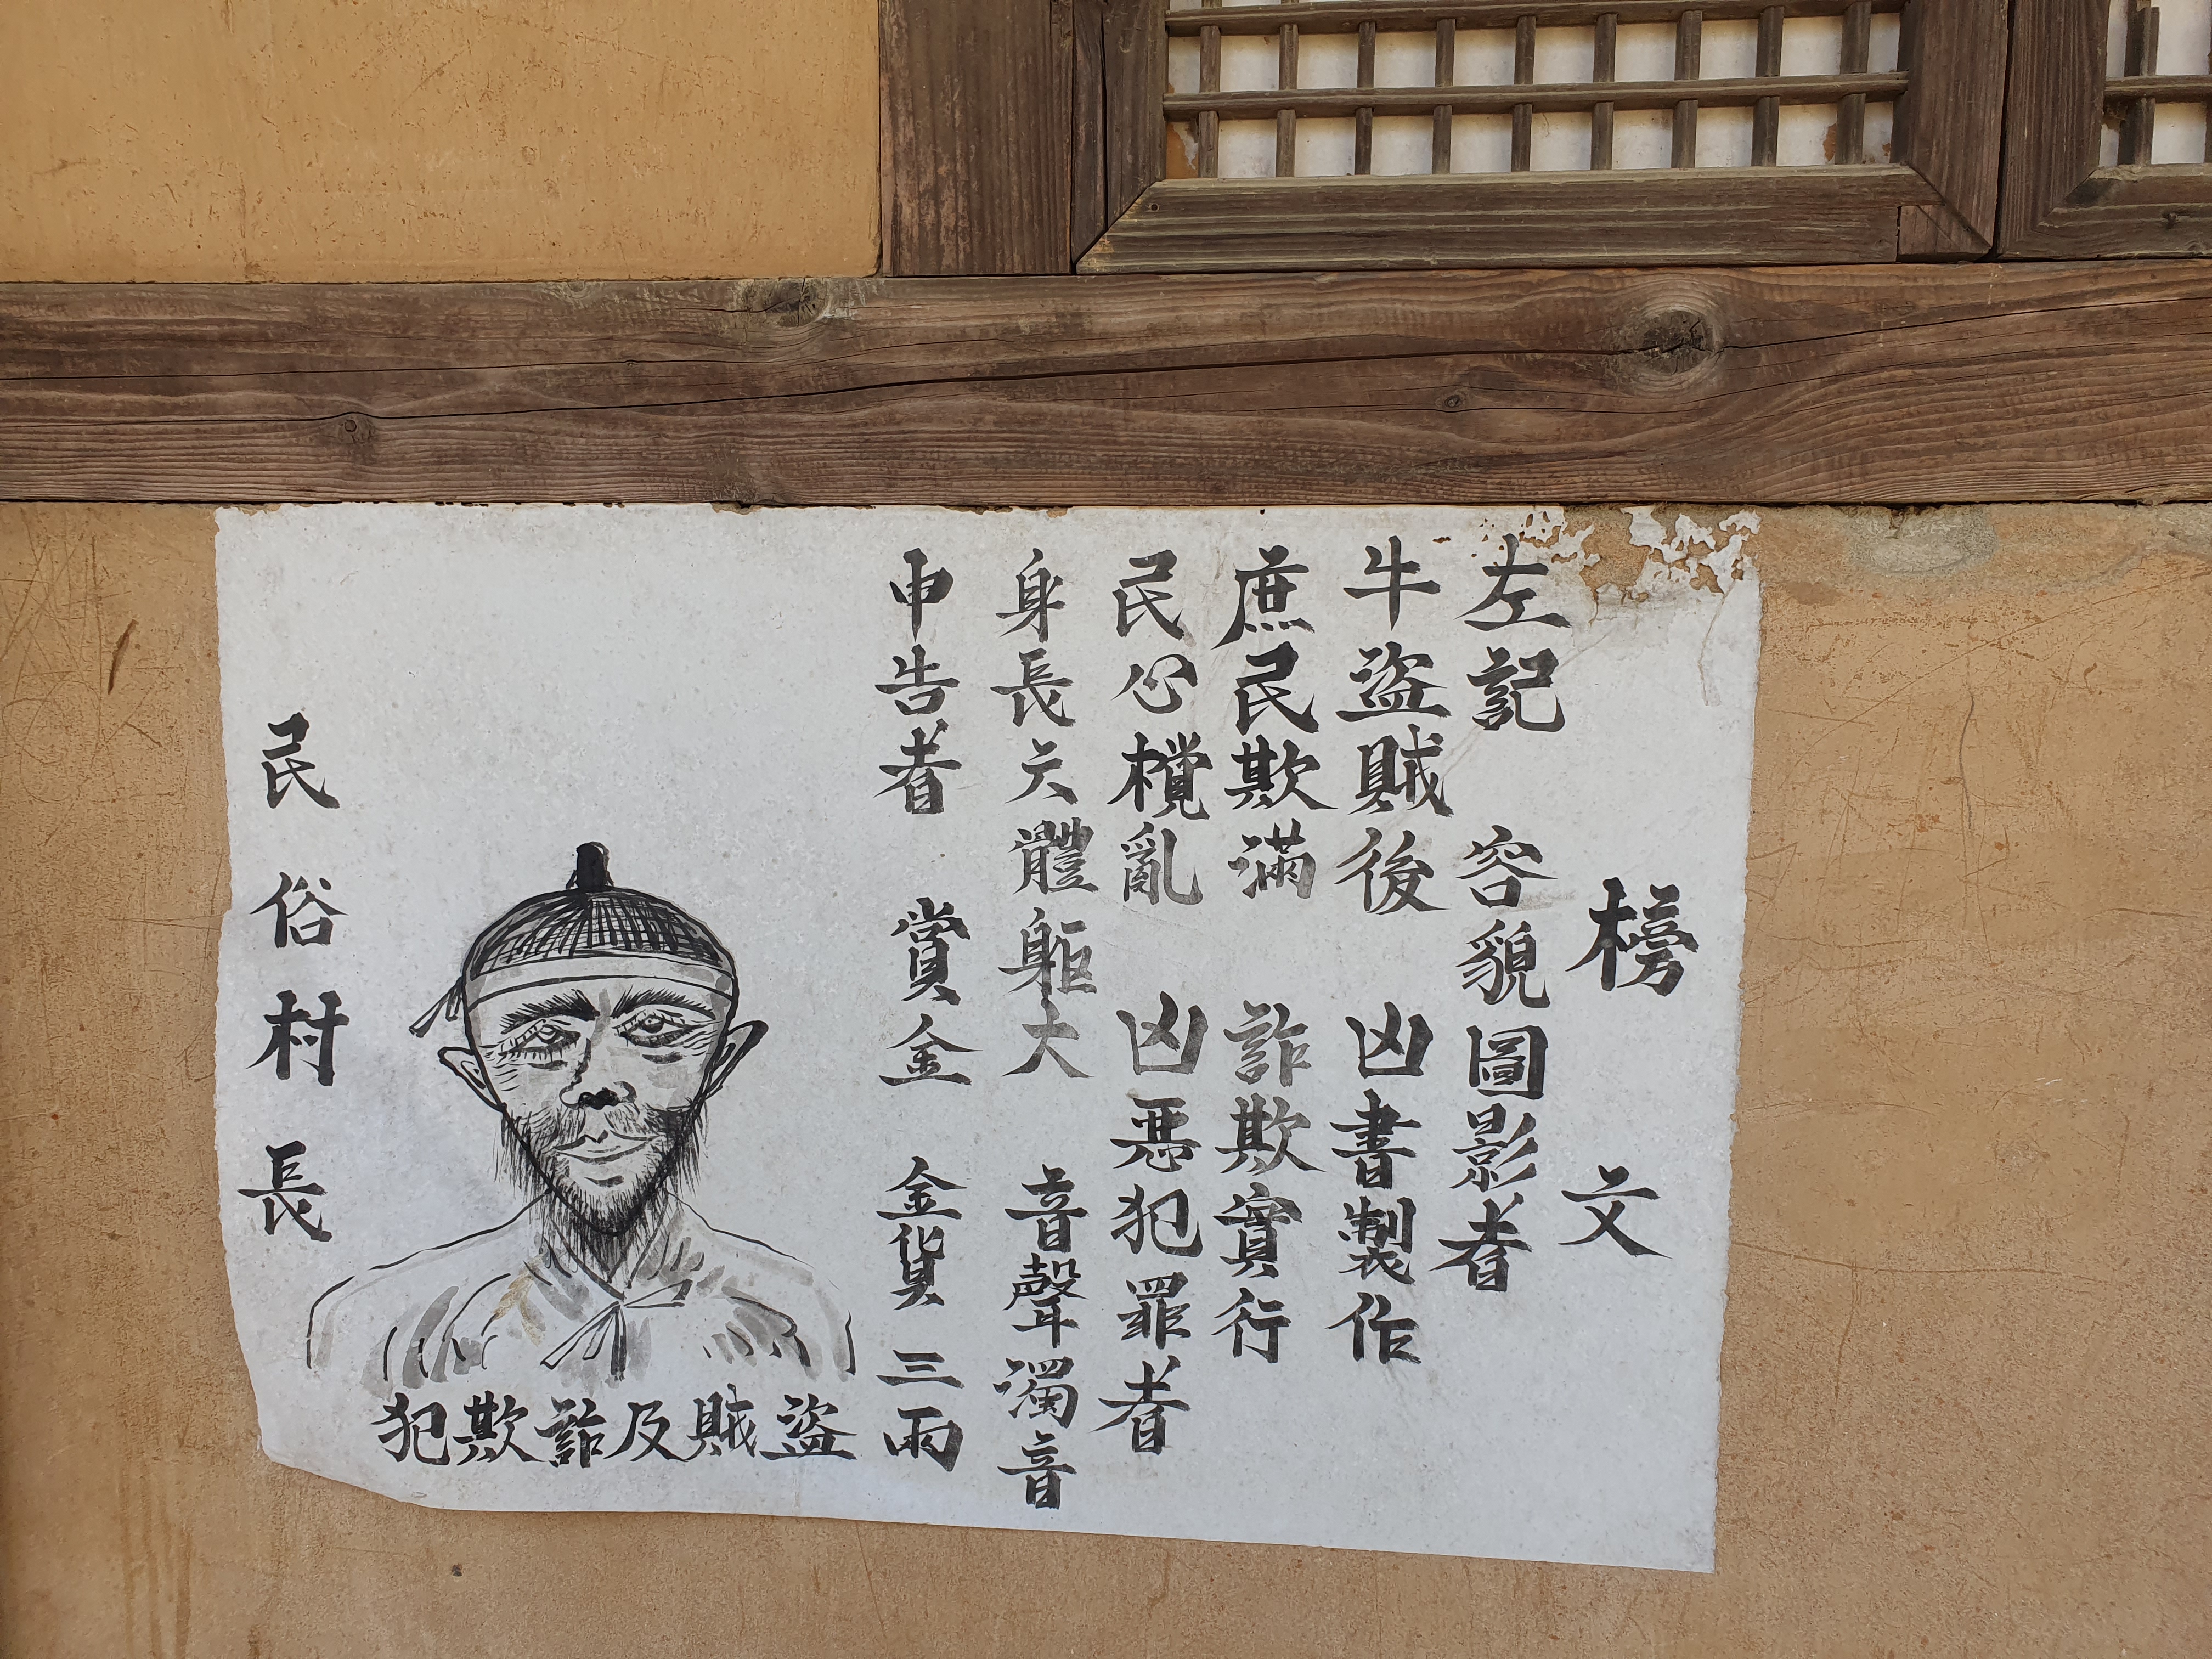 榜文
左記 容貌圖影者
牛盜賊後 凶書製作
庶民欺滿 詐欺實行
民心欖亂 凶惡犯罪者
身長六體軀大 音聲濁音
申告者 賞金 金貨 三兩
盜賊及詐欺犯
民俗村長